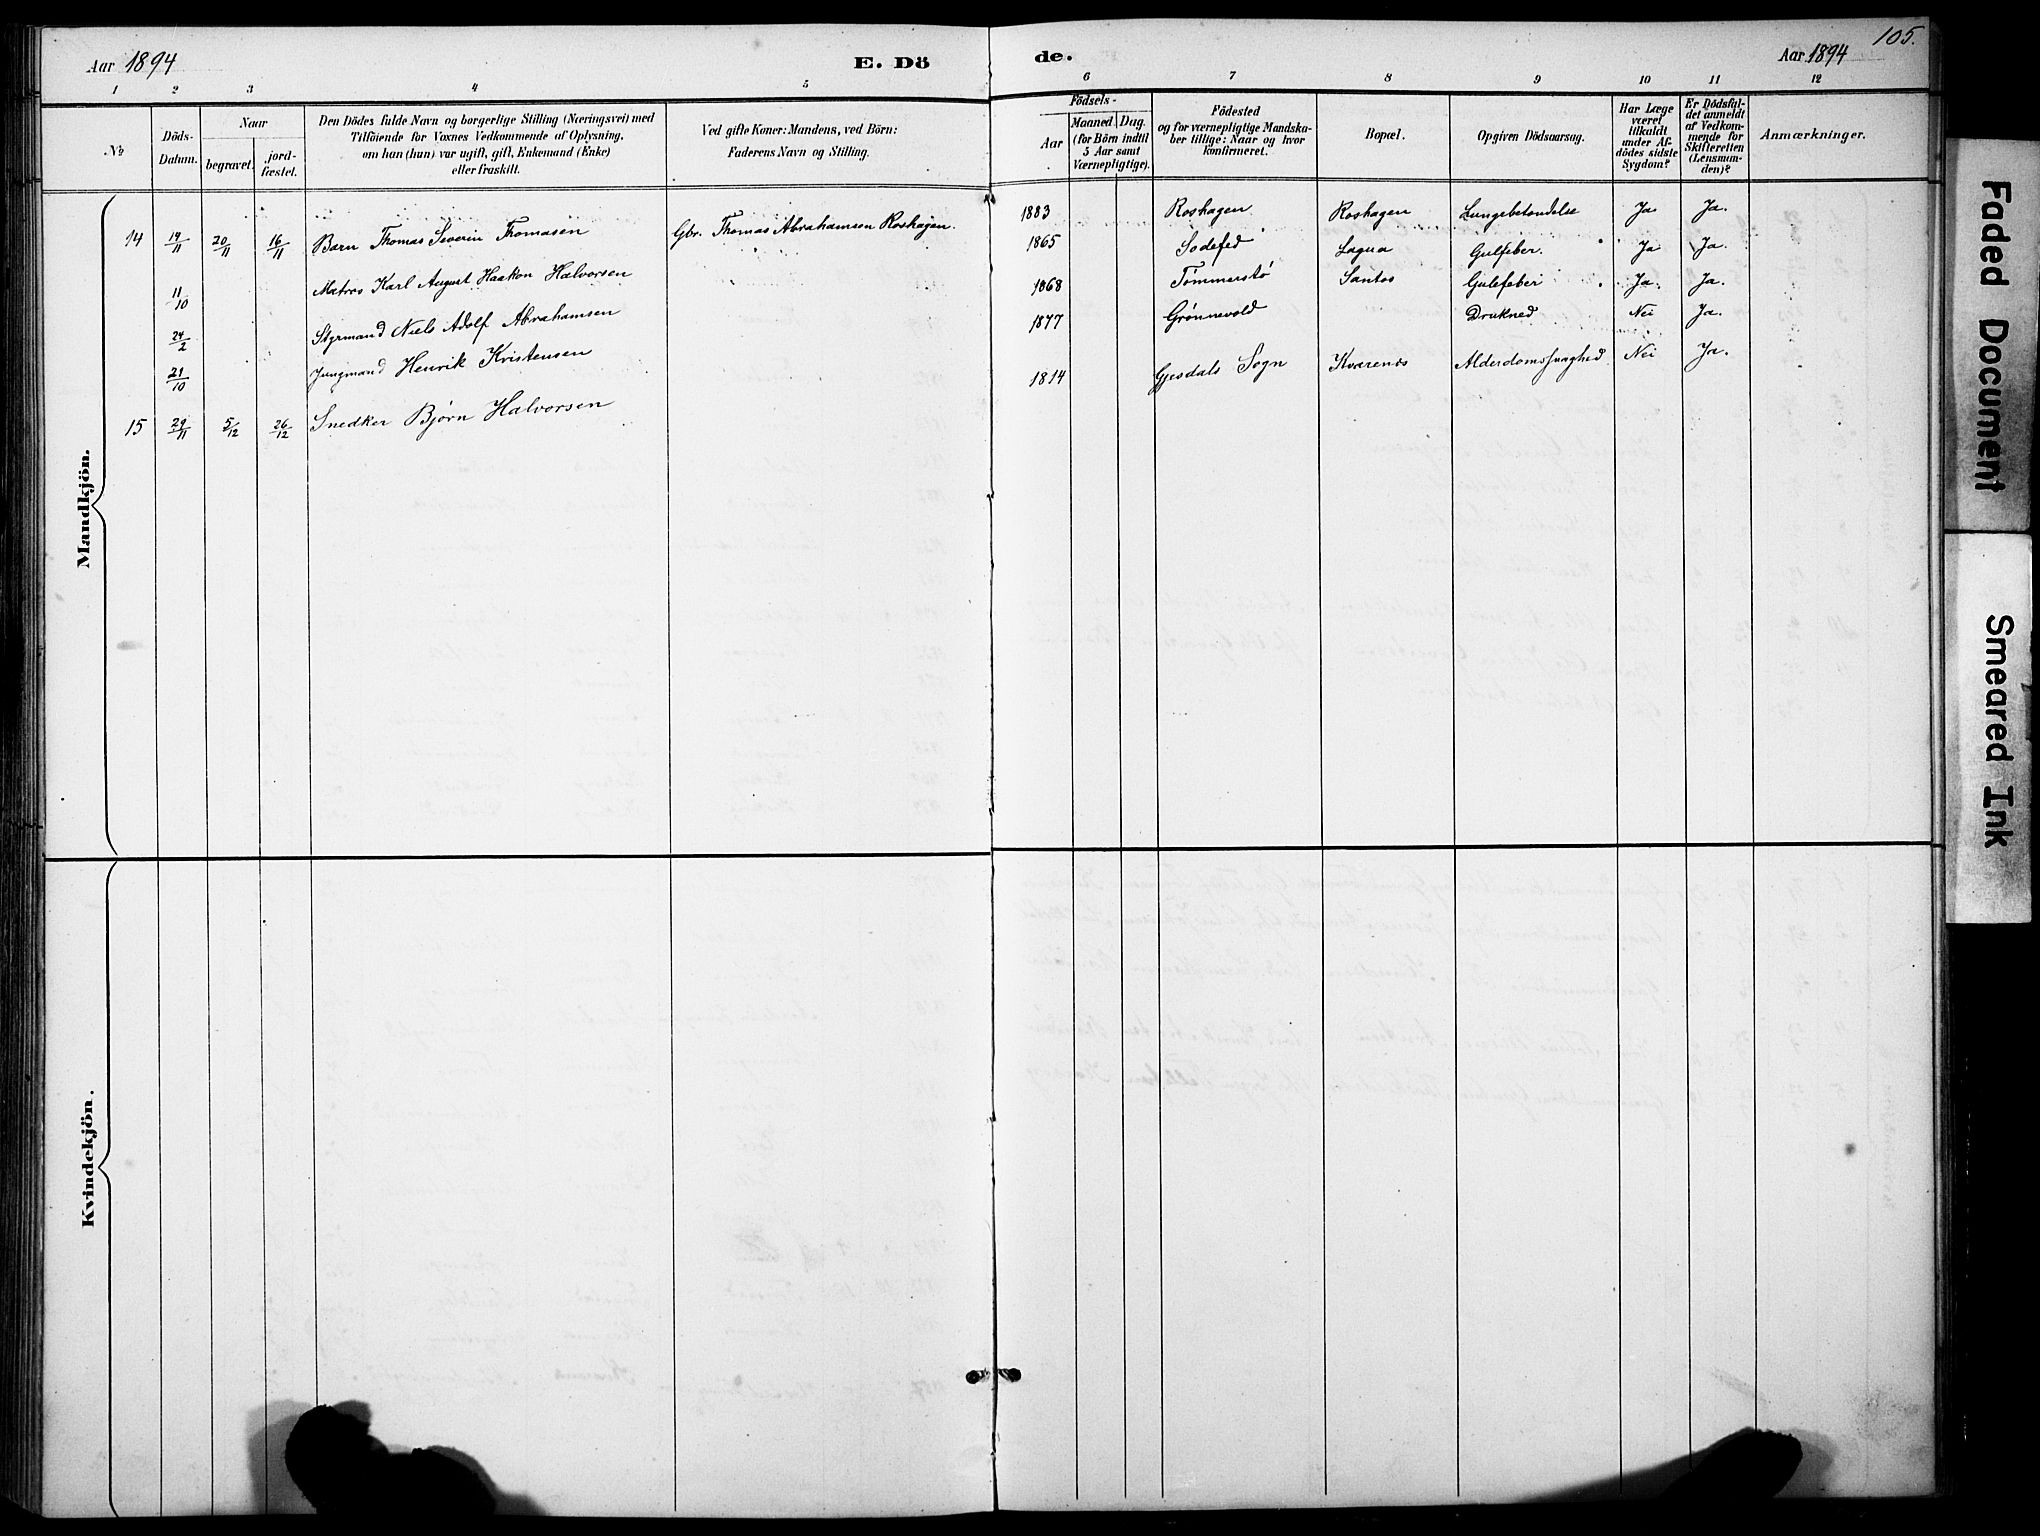 105.
Aar 1894 E. Dö de. Aar 1894
1 2 3 4 5 6 7 8 9 10 11 12
No
Döds-Datum.
Naar
begravet.
jord-fæstet.
Den Dödes fulde Navn og borgerlige Stilling (Næringsvei) med
Tilföiende for Voxnes Vedkommende af Oplysning,
om han (hun) var ugift, gift, Enkemand (Enke)
eller fraskilt.
Ved gifte Koner: Mandens, ved Börn:
Faderens Navn og Stilling.
Födsels-
Aar
Maaned. Dag.
(for Börn indtil
5 Aar samt
Værnepligtige).
Födested
og for værnepligtige Mandska-
ber tillige: Naar og hvor
konfirmeret.
Bopæl.
Opgiven Dödsaarsag.
Har Læge
været
tilkaldt
under Af-
dödes sidste
Sygdom?
Er Dödsfal-
det anmeldt
af Vedkom-
mende for
Skifteretten
(Lensman-
den)?
Anmærkninger.
Mandkjön.
14 14/11 20/11 16/11 Barn Thomas Severin Thomasen Gbr. Thomas Abrahamsen Roshagen. 1883 Roshagen Roshagen Lungebetændelse Ja Ja.
11/10 Matros Karl August Haakon Halvorsen 1865 Lagua Gulfeber. Ja Ja.
24/2 Styrmand Niels Adolf Abrahamsen 1868 Tømmerstø Santos Gulefeber Ja. Ja.
21/10 Jungmand Henrik Kristensen 1877 Grønnevold Drukned Nei Ja.
15 29/11 5/12 26/12 Snedker Bjørn Halvorsen 1814 Gjesdals Sogn Kvarenes Alderdomssvaghed Nei Ja.
Kvindekjön.
Faded Document
Smeared Ink